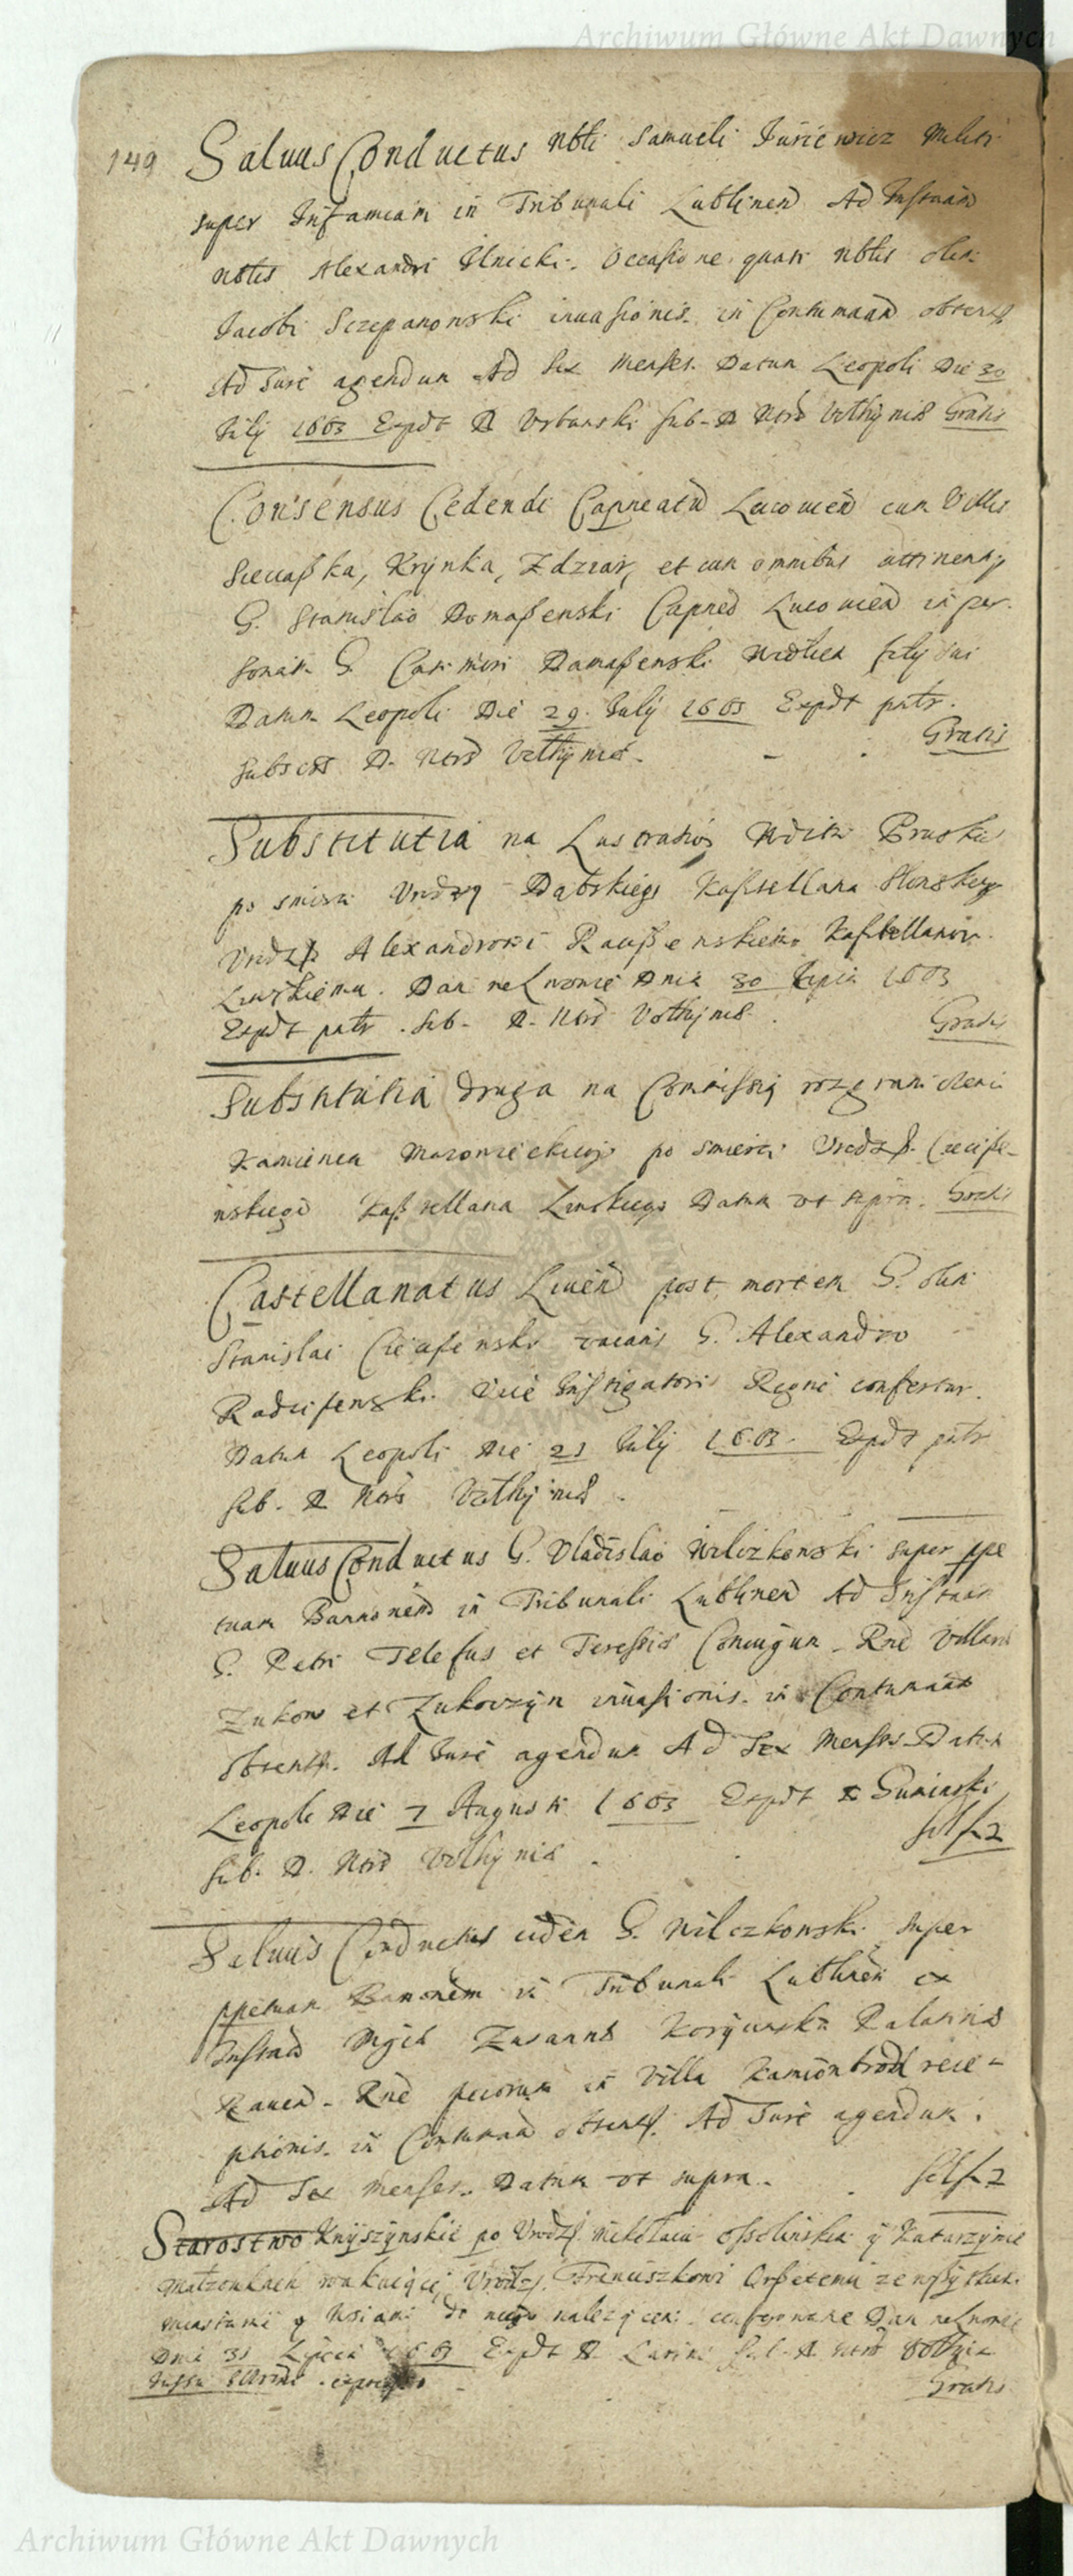 Archiwum Główne Akt Dawnych
149
Saluus Conductus Nbli Samueli Jusiewicz Militi
super Infamiam in Tribunali Lublinen Ad Instuam
Nblis Alexandri Ilnicki. Occasione quasi Nblis olim
Jacobi Sczepanowski inuasionis in Contumaam obtent
Ad Jure agendum Ad Sex Menses. Datum Leopoli Die 30
Julij 1663 Expdt D Urbanski sub D Ntrd Volhyniae Gratis
Consensus Cedendi Capneatu Lucouien cum Villis
Krynka, Zdziar, et cum omnibus attinentys
G. Stanislao Domaszenski Capneo Lucouien in per
sonam G. Casimiri Domaszenski filij sui
Datum Leopoli Die 29 July 1663 Expdt patr.
D. Ntrd Volhyniae. Gratis
Substitutia na Lustratią Wdztw Pruskie
po smierci Urodzo Dąbskiego Kasztellana Slonskiego
Urodz Alexandrowi Kasztellanowi
Liwskiemu. Dan we Lwowie Dnia 30 Lipca 1663
Expdt patr. Sub. D. Ntrd Volhyniae. Gratis
Substitutia druga na Comissią rozgraniczenia
Kamienca Mazowieckiego po smierci Urodz. Ciecisze-
nskiego Kasztellana Liwskiego Datum ut supra. Gratis
Castellanatus Liuen post mortem G. olim
Stanislai Ciecisenski vacans G. Alexandro
Radziszenski Vice Instigatori Regni confertur.
Datum Leopoli Die 21 Julij 1663. Expdt patr
Sub. D Ntrd Volhyniae.
Saluus Conductus G. Vladislao Wilczkowski super ppe
tuam Bannonem in Tribunali Lublinen Ad Instuam
G. Petri Telefus et Teressiae Coniugum Rne Villarum
Zukow et Zukowzyn inuasionis in Contumaam
obtent. Ad Jure agendum Ad Sex Menses Datum
Leopoli Die 7 Augusti 1663 Expdt D Guminski
Sub. D. Ntrd Volhyniae. sol f. 2
Saluus Conductus eidem G. Wilczkowski super
ppetuam Bannonem in Tribunali Lublinen ex
Instua Zusannae Palatinae
Rauen. Rne pecorum in Villa Kamionbrod rece-
ptionis in Contumaam obtent. Ad Jure agendum.
Ad Sex Menses. Datum ut supra. sol f. 2
Starostwo Knyszynskie po Urodz Mikołaiu Ossolinskim y Katarzynie
Małzonkach wakuiące, Urodz Franciszkowi ze wszystkiemi
miastami y wsiami do niego nalezącemi conferowane Dan we Lwowie
Dnia 31 Lipca 1663 Expdt D. Sub. D. Ntrd Volhyn
Gratis
Archiwum Główne Akt Dawnych